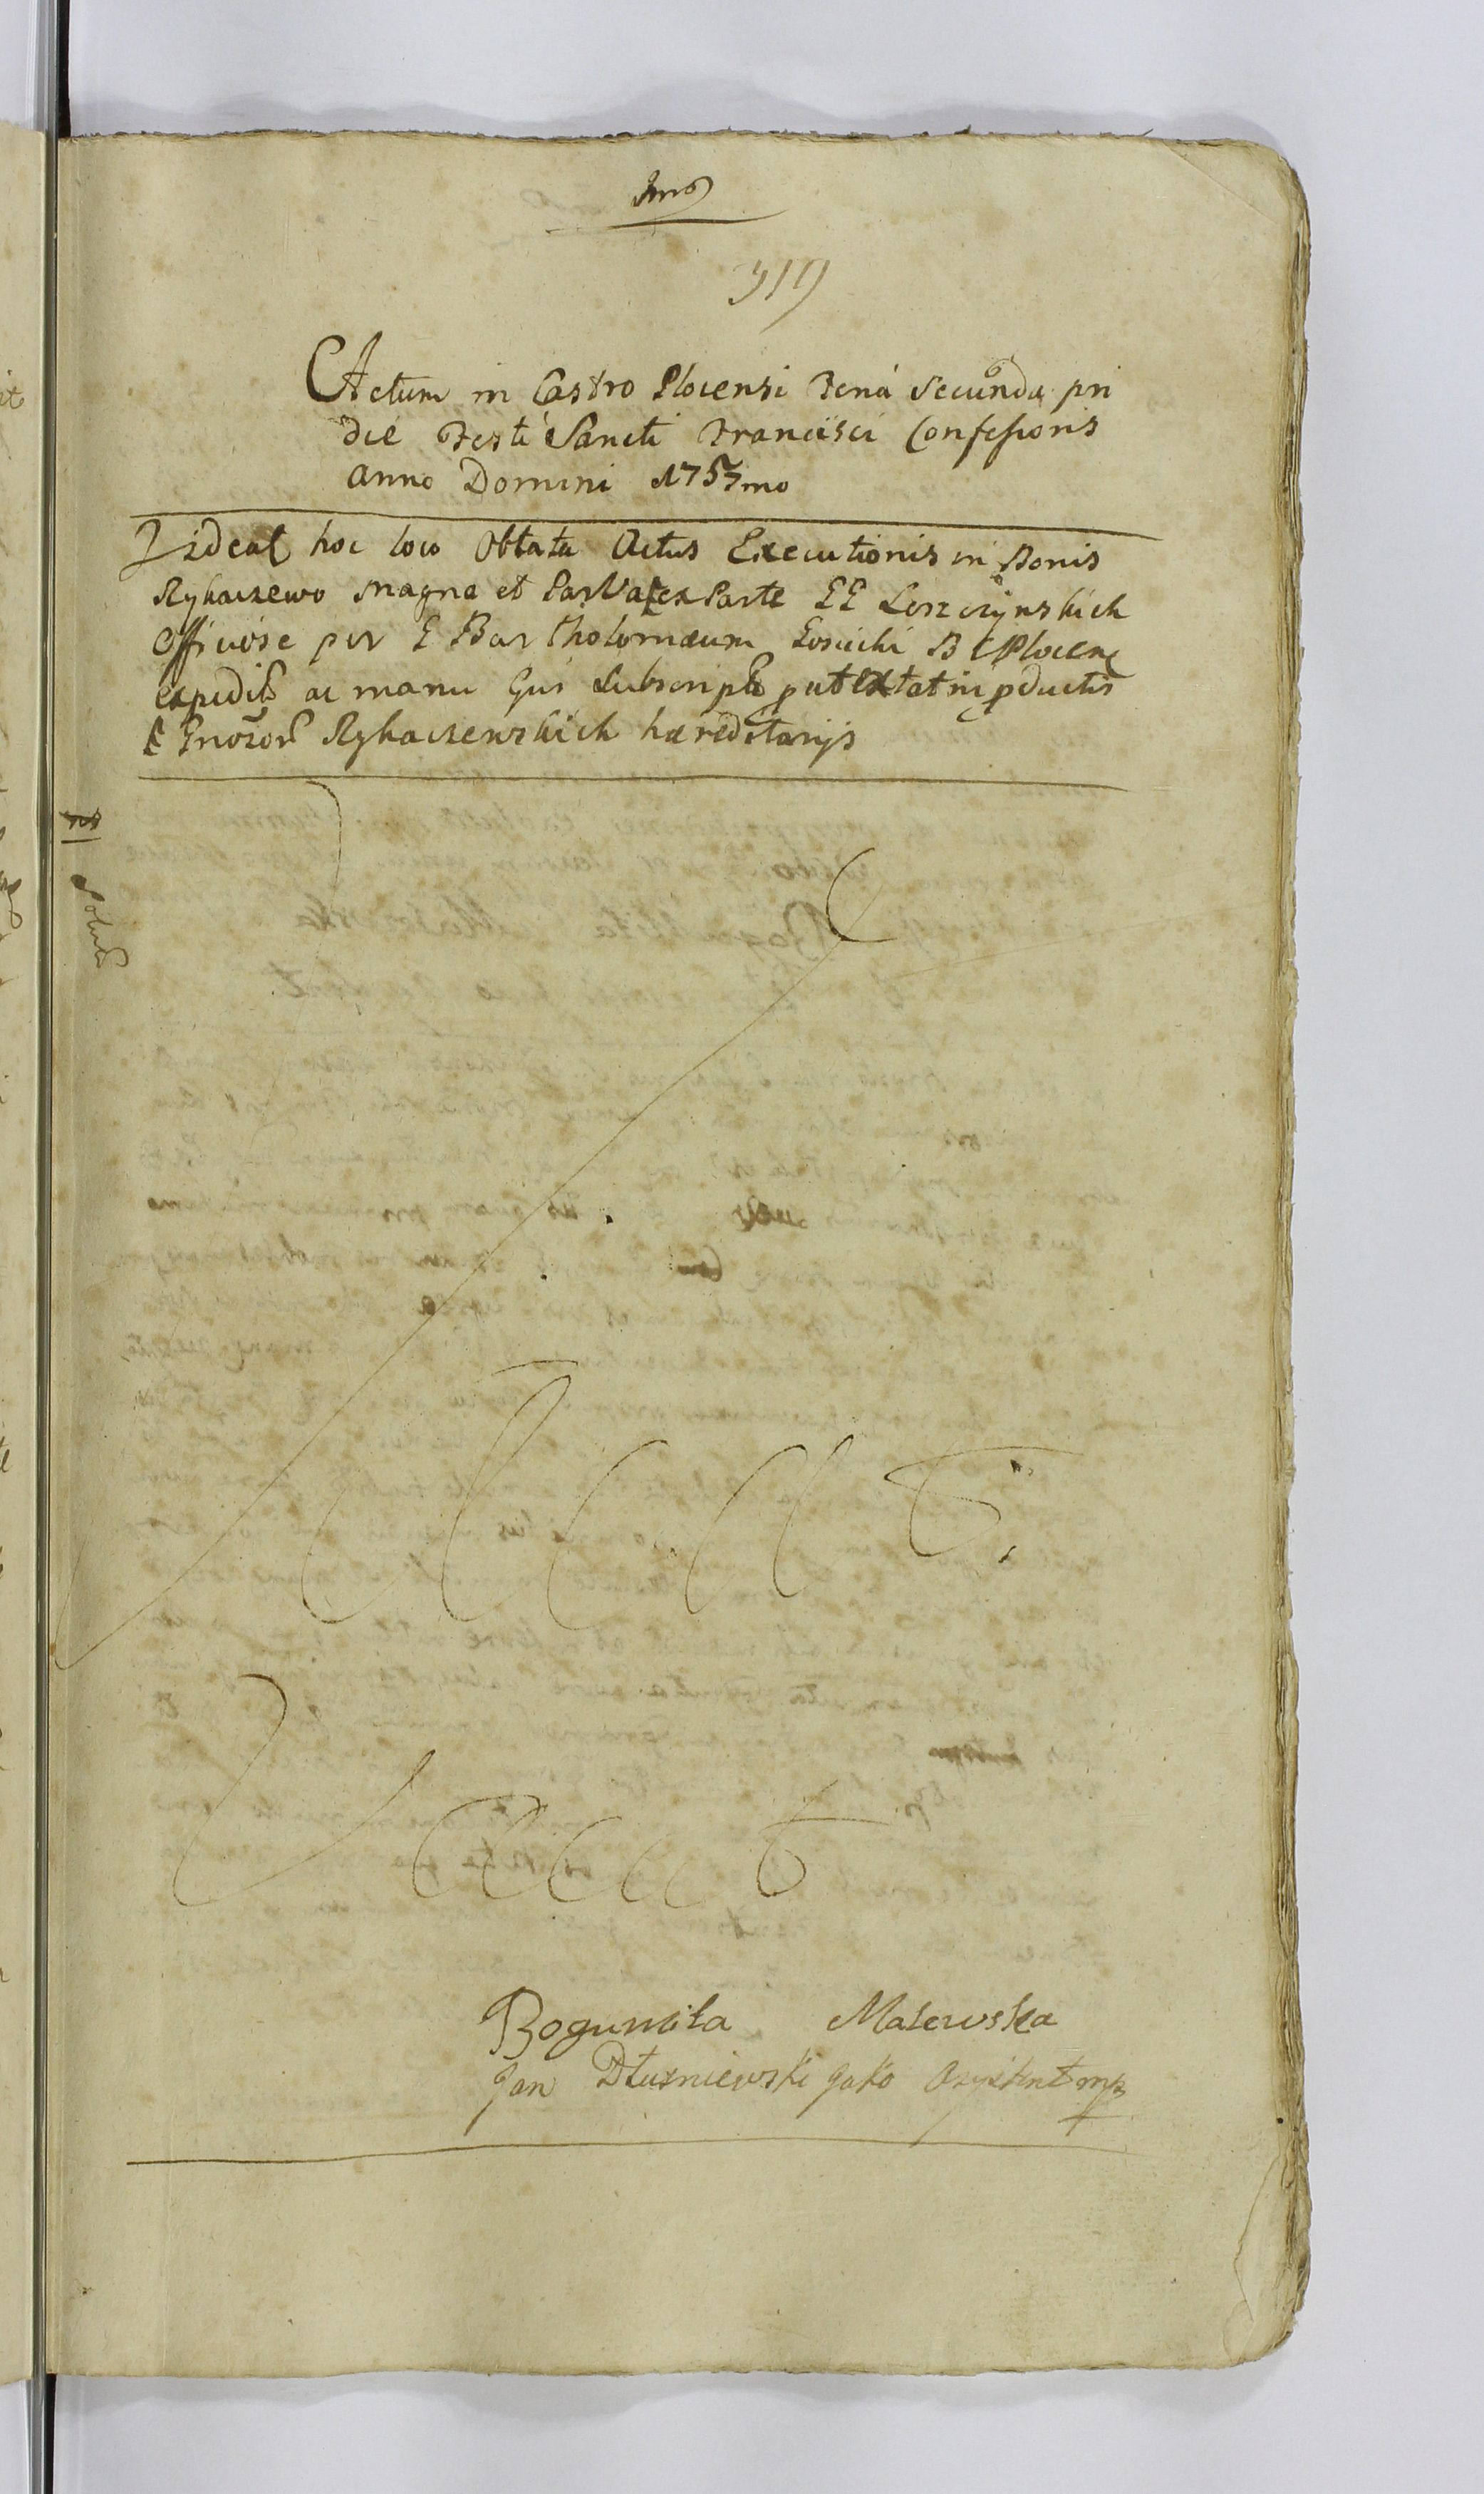 919
Actum in Castro Plocensi Feria Secunda pri
die Festi Sancti Francisci Confessoris
anno Domini 1757mo
Videat hoc loco Oblata Actus Executionis in Bonis
Rykaczewo Magna et Parva ex Parte EE Leszczynskich
Officiose per E Bartholomæum Łosicki B C Plocens
expedit ac manu Ejus Subscript put extat in pductis
E Gnosor Rykaczewskich hæreditarijs
solut
Vacat
Vacat
Bogumiła Malewska
Jan Dłuzniewski jako Asystent mp